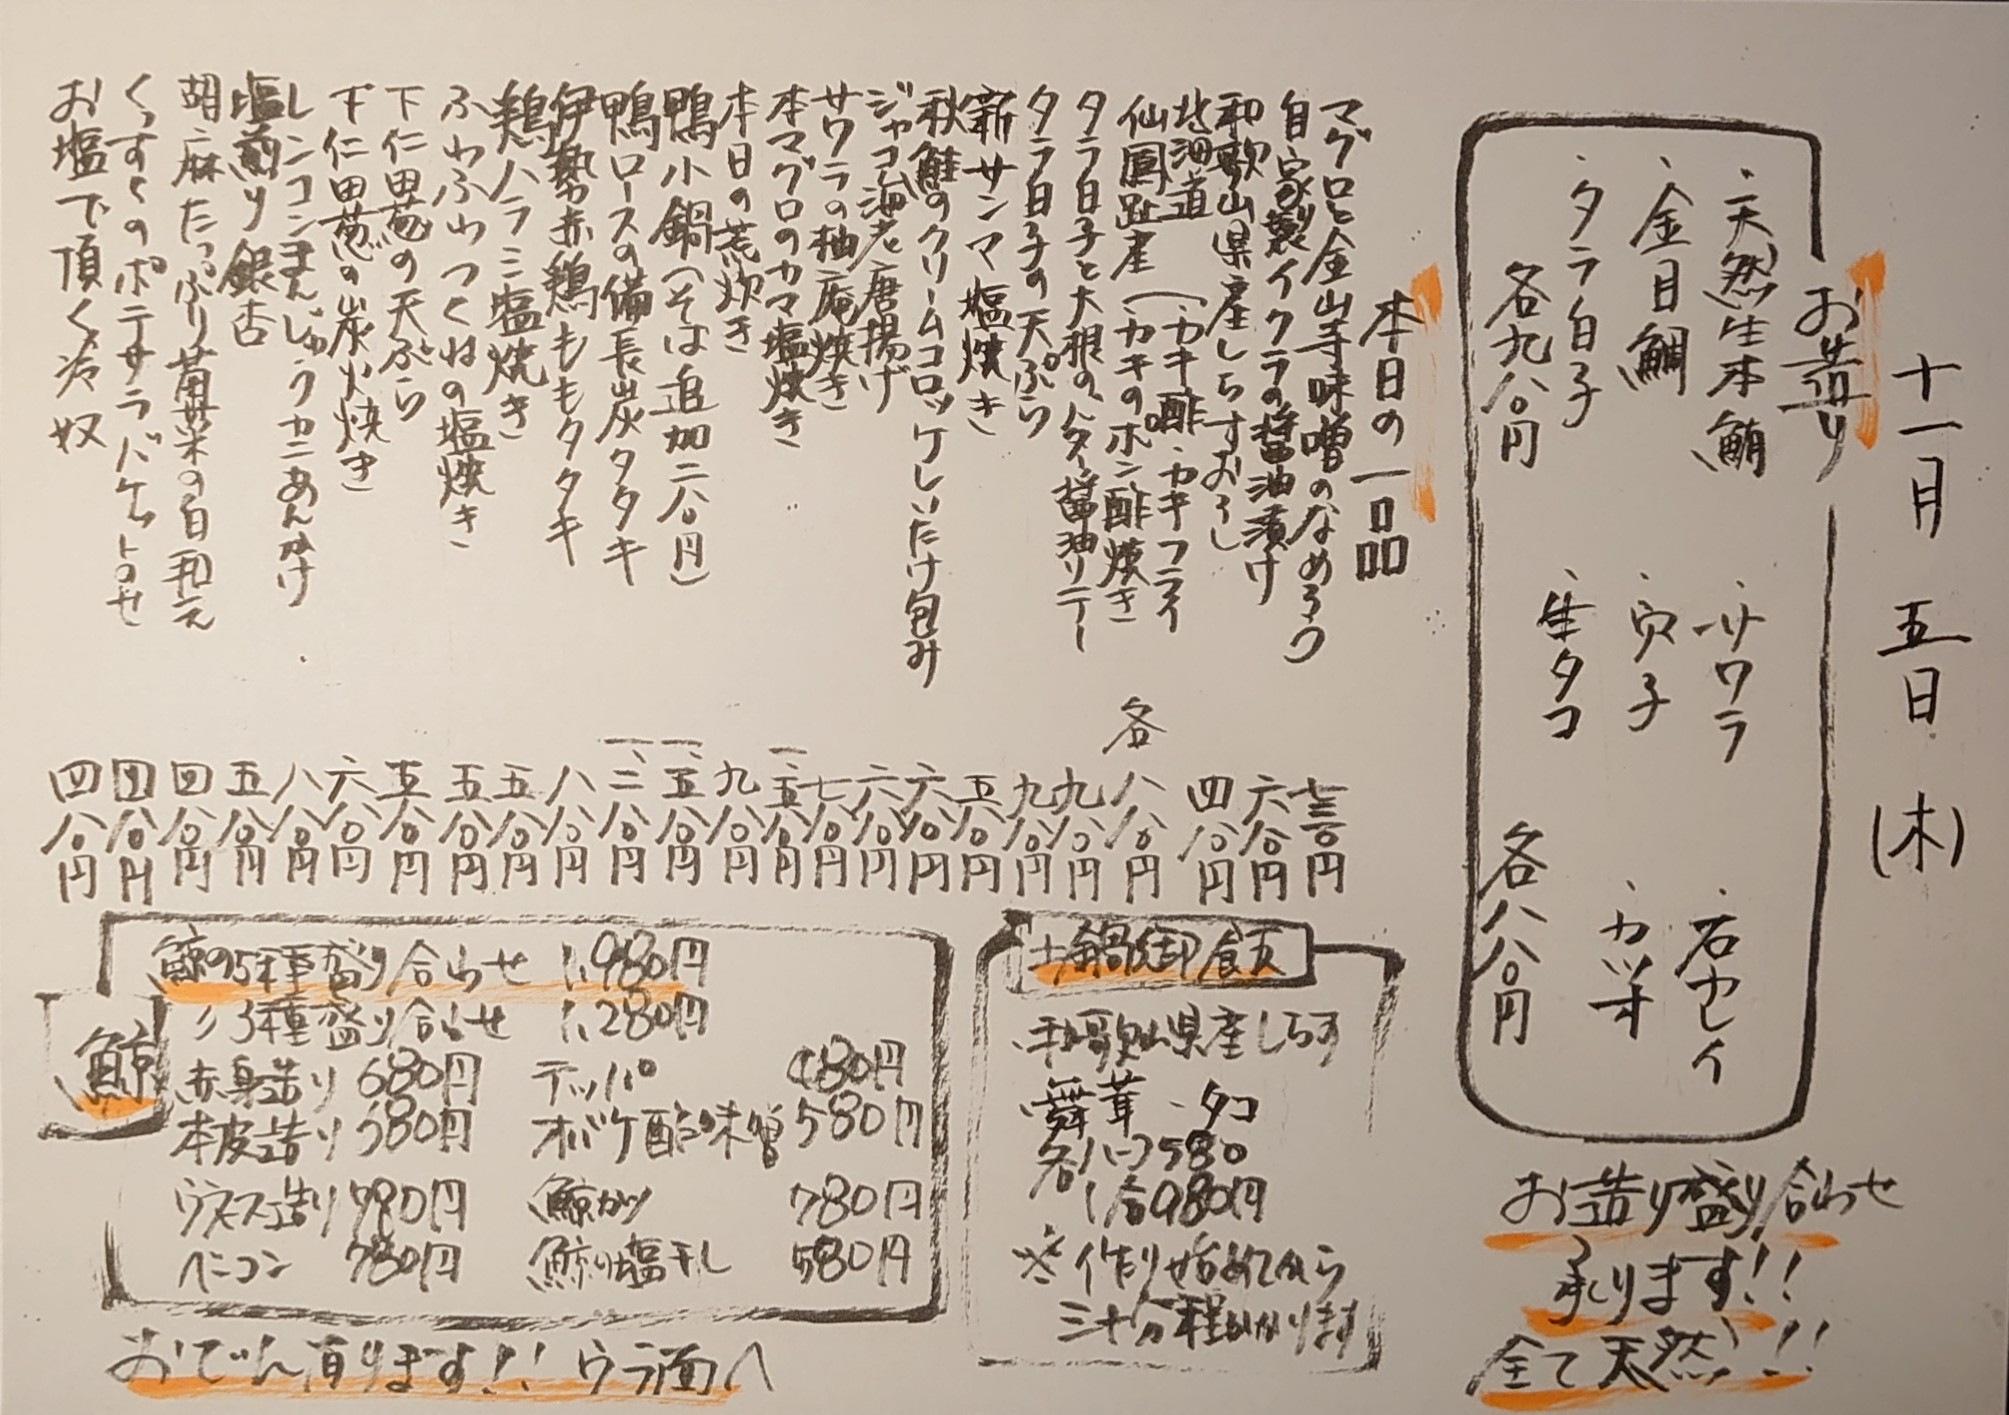 十一月 五日 (木)
お造り
・天然生本鮪 ・サワラ ・石カレイ
・金目鯛 ・穴子 ・カツオ
・タラ白子 ・生タコ
各九八〇円 各八八〇円
お造り盛り合わせ
承ります!!
全て天然!!
本日の一品
マグロと金山寺味噌のなめろう 七三〇円
自家製イクラの醤油漬け 六八〇円
和歌山県産しらすおろし 四八〇円
北海道
仙鳳趾産(・カキ酢・カキフライ
・カキのポン酢焼き 各八八〇円
タラ白子と大根のバター醤油ソテー 九八〇円
タラ白子の天ぷら 九八〇円
新サンマ塩焼き 五八〇円
秋鮭のクリームコロッケしいたけ包み 六八〇円
ジャコ海老唐揚げ 六八〇円
サワラの柚庵焼き 七八〇円
本マグロのカマ塩焼き 一、五八〇円
本日の荒炊き 九八〇円
鴨小鍋(そば追加二八〇円) 一、五八〇円
鴨ロースの備長炭タタキ 一、二八〇円
伊勢赤鶏ももタタキ 八八〇円
鶏ハラミ塩焼き 五八〇円
ふわふわつくねの塩焼き 五八〇円
下仁田葱の天ぷら 五八〇円
下仁田葱の炭火焼き 六八〇円
レンコンまんじゅうカニあんかけ 八八〇円
塩煎り銀杏 五八〇円
胡麻たっぷり菊菜の白和え 四八〇円
くんすくのポテサラバケット付 四八〇円
お塩で頂く冷奴 四八〇円
土鍋御飯
・和歌山県産しらす
・舞茸 ・タコ
各ハーフ580
1合980円
※作り始めてから
三十分程かかります
鯨
鯨の5種盛り合わせ 1,980円
〃3種盛り合わせ 1,280円
赤身造り 680円 テッパ 980円
本皮造り 580円 オバケ酢味噌 580円
ウネス造り 780円 鯨カツ 780円
ベーコン 780円 鯨の塩干し 580円
おでん有ります!! ウラ面へ